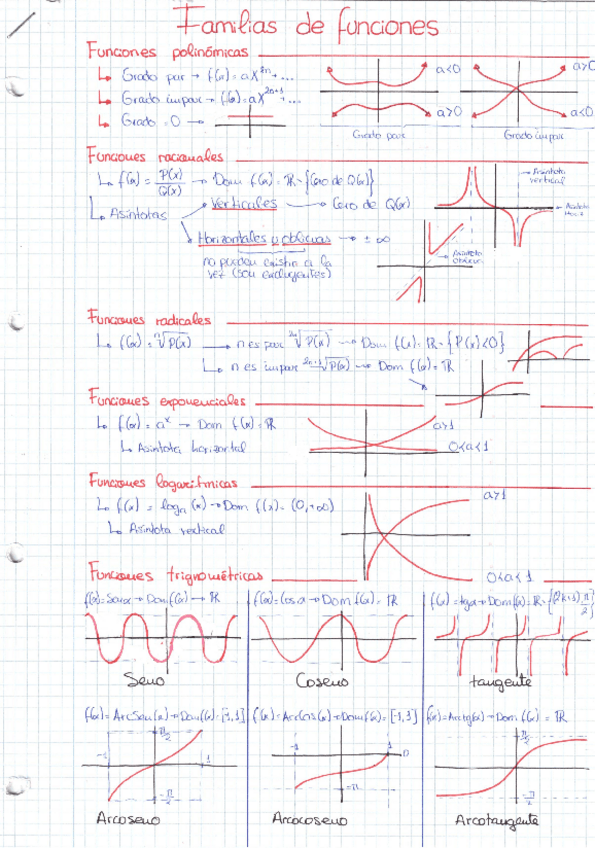 Familias de funciones
Funciones polinómicas
↳ Grado par → f(x) = ax²ⁿ + ...
↳ Grado impar → f(x) = ax²ⁿ⁺¹ + ...
↳ Grado = 0 →
a<0
a>0
Grado par
a>0
a<0
Grado impar
Funciones racionales
↳ f(x) = P(x)/Q(x) → Dom f(x) = ℝ - {Cero de Q(x)}
↳ Asíntotas
Verticales → Cero de Q(x)
Horizontales u oblicuas → ± ∞
no pueden existir a la
vez (son excluyentes)
Asíntota
vertical
Asíntota
Asíntota
oblicua
Funciones radicales
↳ f(x) = ⁿ√P(x) → n es par ²ⁿ√P(x) → Dom f(x) = ℝ - {P(x)<0}
↳ n es impar ²ⁿ⁺¹√P(x) → Dom f(x) = ℝ
Funciones exponenciales
↳ f(x) = aˣ → Dom f(x) = ℝ
↳ Asíntota horizontal
a>1
0<a<1
Funciones logarítmicas
↳ f(x) = logₐ(x) → Dom f(x) = (0,+∞)
↳ Asíntota vertical
a>1
0<a<1
Funciones trigonométricas
f(x) = Sen x → Dom f(x) → ℝ
Seno
f(x) = Cos x → Dom f(x) = ℝ
Coseno
f(x) = tg x → Dom f(x) = ℝ - {(2k+1) π/2}
tangente
f(x) = ArcSen(x) → Dom f(x) = [-1,1]
π/2
-1
1
-π/2
Arcoseno
f(x) = ArcCos(x) → Dom f(x) = [-1,1]
-1
1
0
-π
Arcocoseno
f(x) = Arctg(x) → Dom f(x) = ℝ
π/2
-π/2
Arcotangente